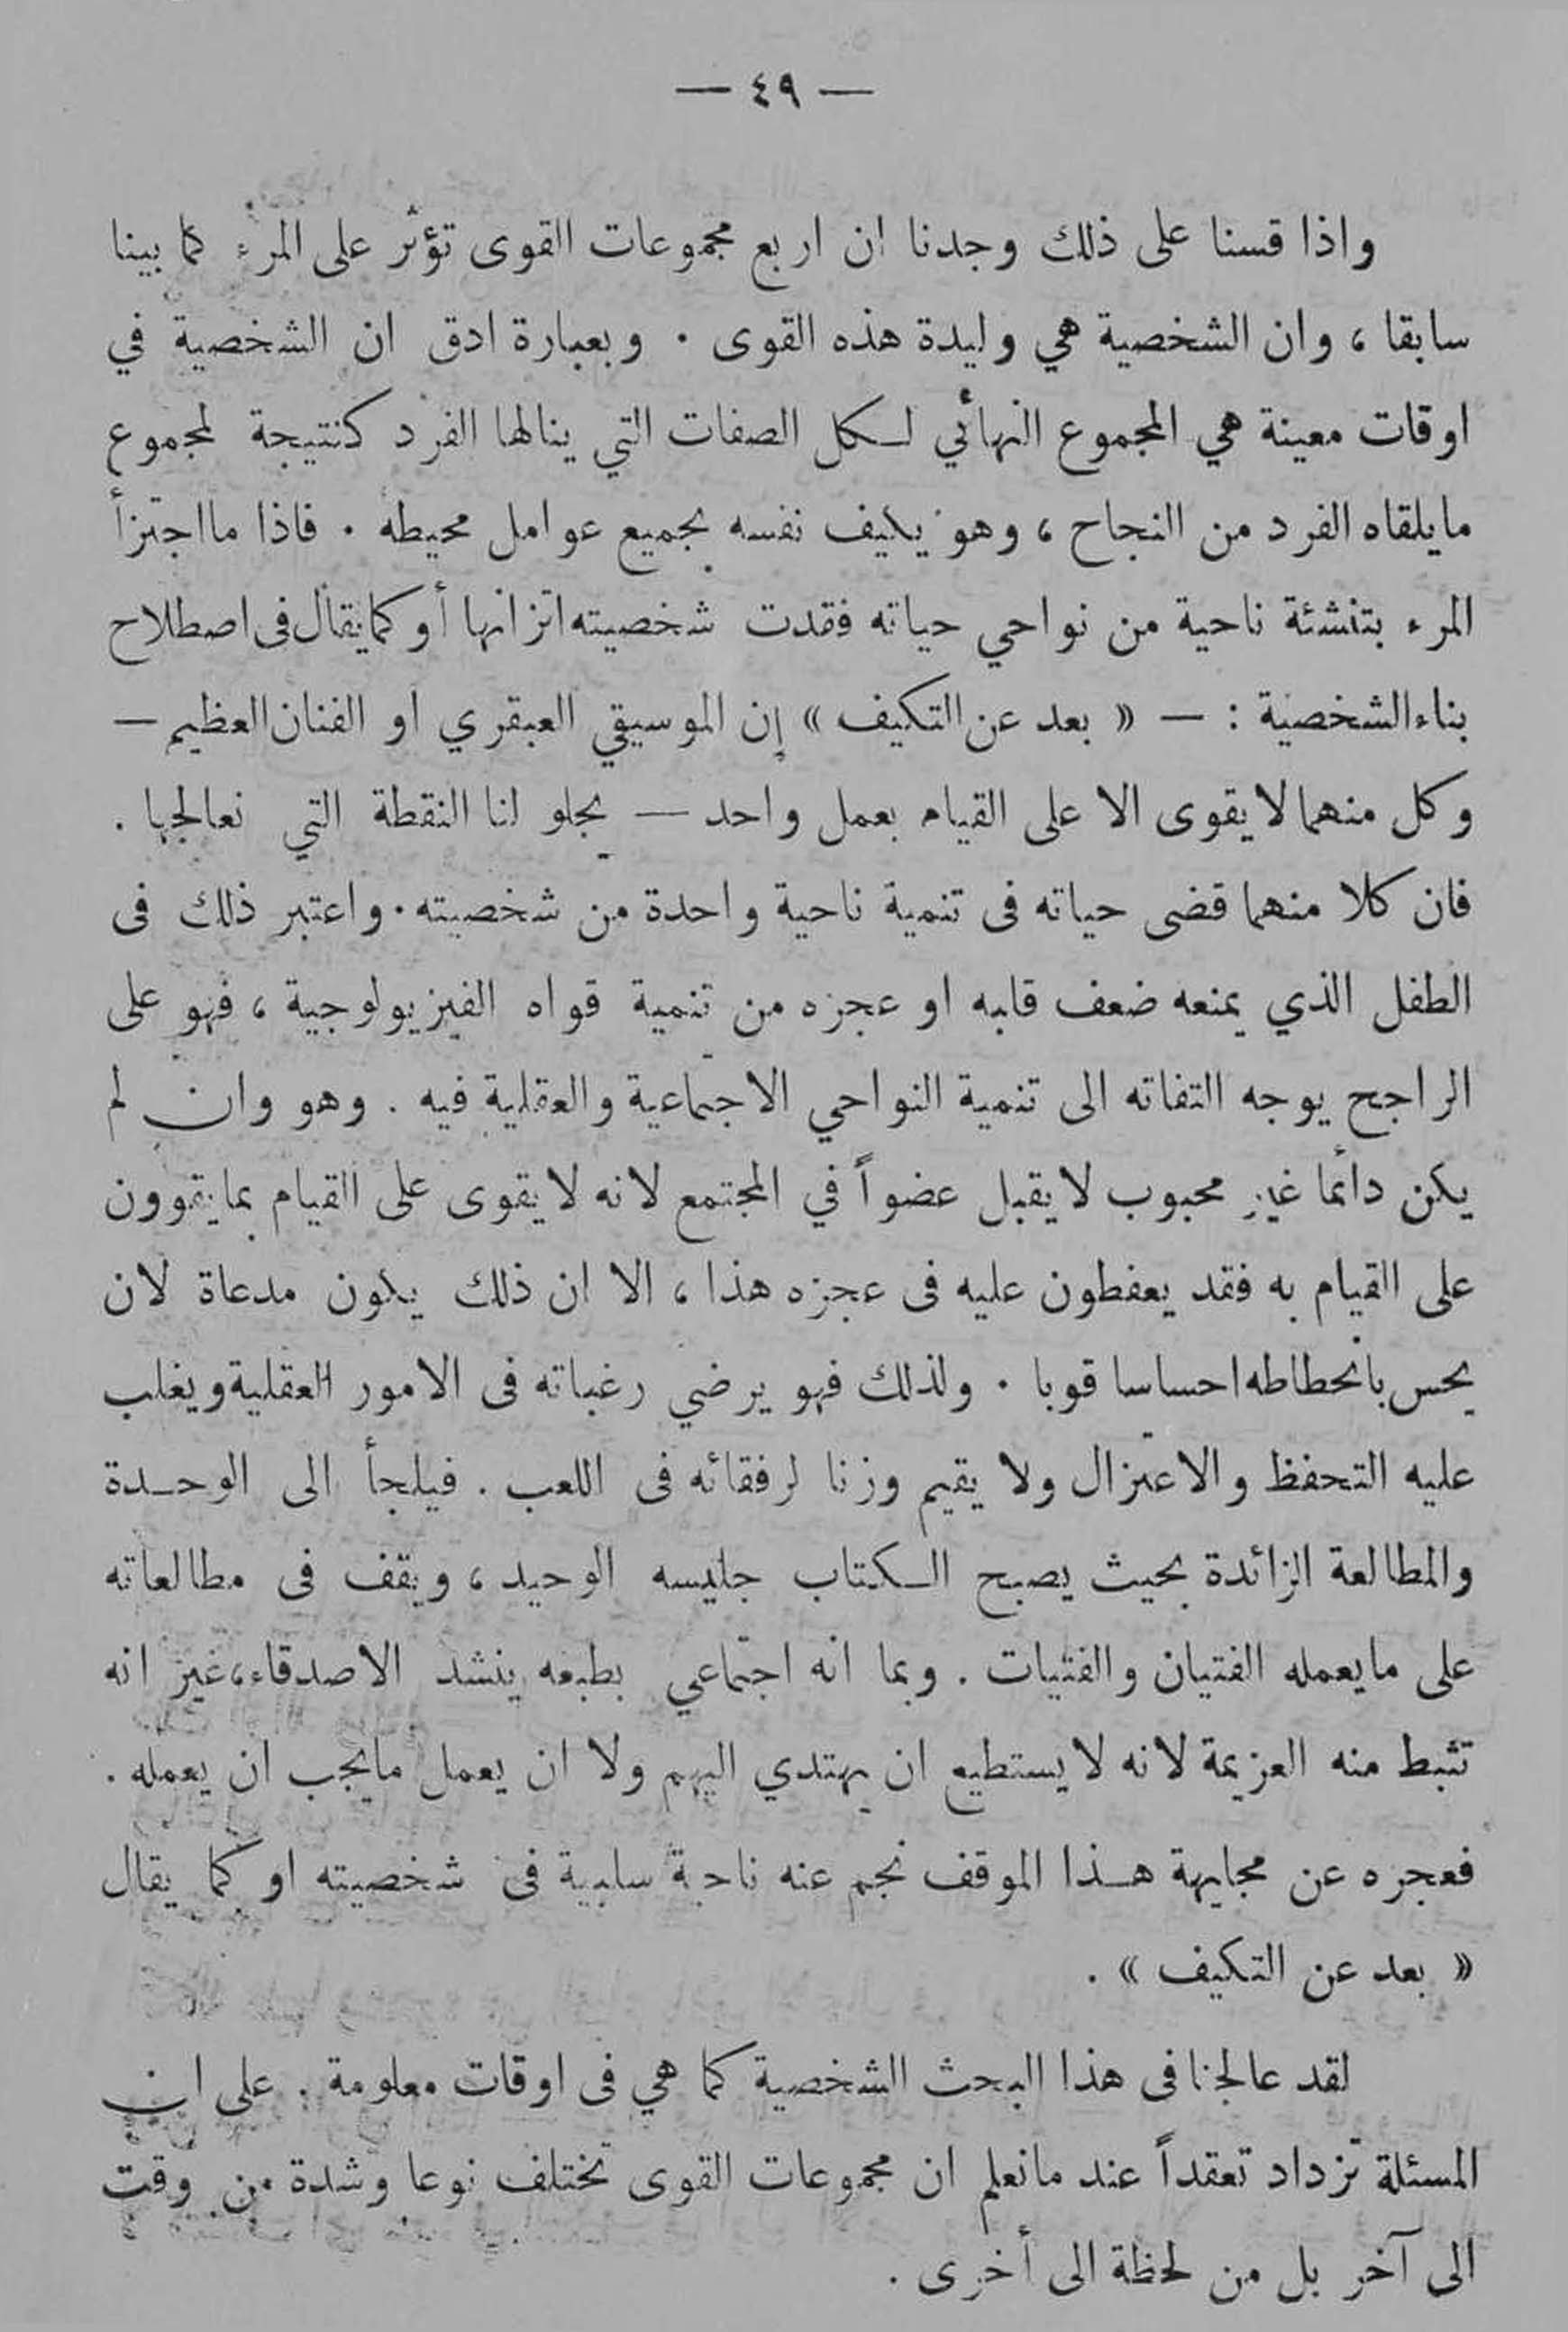 — ٤٩ —
واذا قسنا على ذلك وجدنا ان اربع مجموعات القوى تؤثر على المرء كما بينا
سابقا ، وان الشخصية هي وليدة هذه القوى . وبعبارة ادق ان الشخصية في
اوقات معينة هي المجموع النهائي لكل الصفات التي ينالها الفرد كنتيجة لمجموع
مايلقاه الفرد من النجاح ، وهو يكيف نفسه بجميع عوامل محيطه . فاذا ما اجتزأ
المرء بتنشئة ناحية من نواحي حياته فقدت شخصيته اتزانها أو كما يقال فى اصطلاح
بناء الشخصية : — « بعد عن التكيف » إن الموسيقي العبقري او الفنان العظيم —
وكل منهما لا يقوى الا على القيام بعمل واحد — يجلو لنا النقطة التي نعالجها .
فان كلا منهما قضى حياته فى تنمية ناحية واحدة من شخصيته . واعتبر ذلك فى
الطفل الذي يمنعه ضعف قلبه او عجزه من تنمية قواه الفيزيولوجية ، فهو على
الراجح يوجه التفاته الى تنمية النواحي الاجتماعية والعقلية فيه . وهو وان لم
يكن دائما غير محبوب لا يقبل عضواً في المجتمع لانه لا يقوى على القيام بما يقوون
على القيام به فقد يعفطون عليه فى عجزه هذا ، الا ان ذلك يكون مدعاة لان
يحس بانحطاطه احساسا قويا . ولذلك فهو يرضي رغباته فى الامور العقلية ويغلب
عليه التحفظ والاعتزال ولا يقيم وزنا لرفقائه فى اللعب . فيلجأ الى الوحدة
والمطالعة الزائدة بحيث يصبح الكتاب جليسه الوحيد ، ويقف فى مطالعاته
على مايعمله الفتيان والفتيات . وبما انه اجتماعي بطبعه ينشد الاصدقاء ، غير انه
تثبط منه العزيمة لانه لا يستطيع ان يهتدي اليهم ولا ان يعمل مايجب ان يعمله .
فعجزه عن مجابهة هذا الموقف نجم عنه ناحية سلبية فى شخصيته او كما يقال
« بعد عن التكيف » .
لقد عالجنا فى هذا البحث الشخصية كما هي فى اوقات معلومة . على ان
المسئلة تزداد تعقداً عند مانعلم ان مجموعات القوى تختلف نوعا وشدة من وقت
الى آخر بل من لحظة الى أخرى .